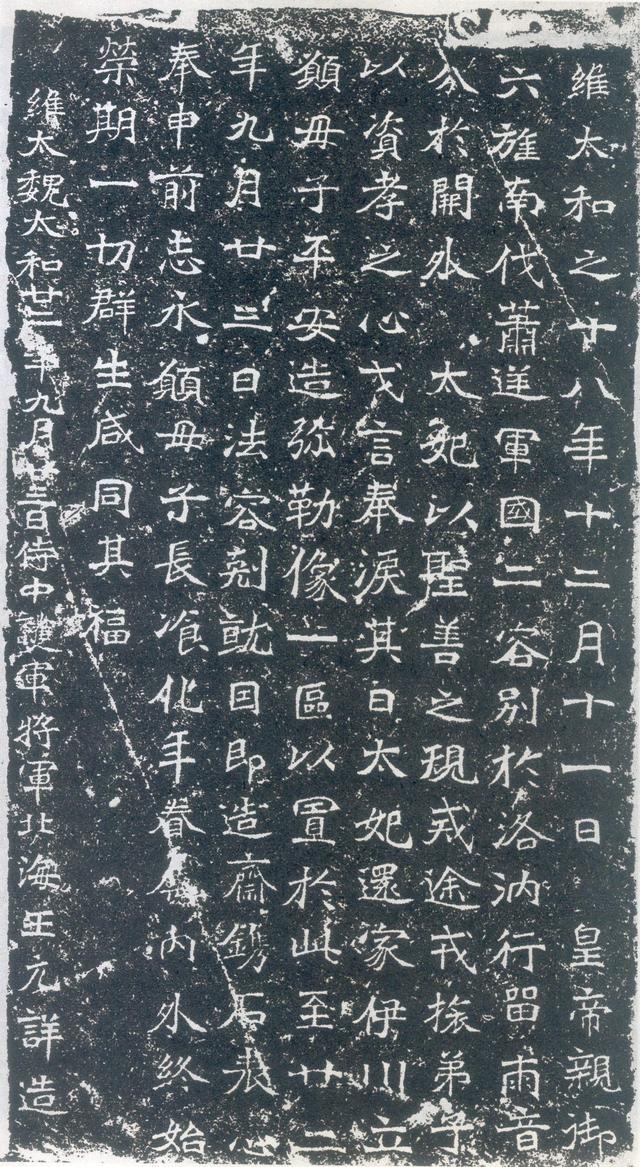 維太和之十八年十二月十一日　皇帝親御
六旌南伐蕭逆軍國二容別於洛汭行留兩音
分於開外　太妃以聖善之規戒途戎旅弟子
以資孝之心戈言奉淚其日太妃還家伊川立
願母子平安造弥勒像一區以置於此至廿二
年九月廿三日法容剋就因即造齋鐫石表心
奉申前志永願母子長飡化年眷屬內外終始
榮期一切群生咸同其福
維太魏太和廿二年九月廿三日侍中護軍將軍北海王元詳造